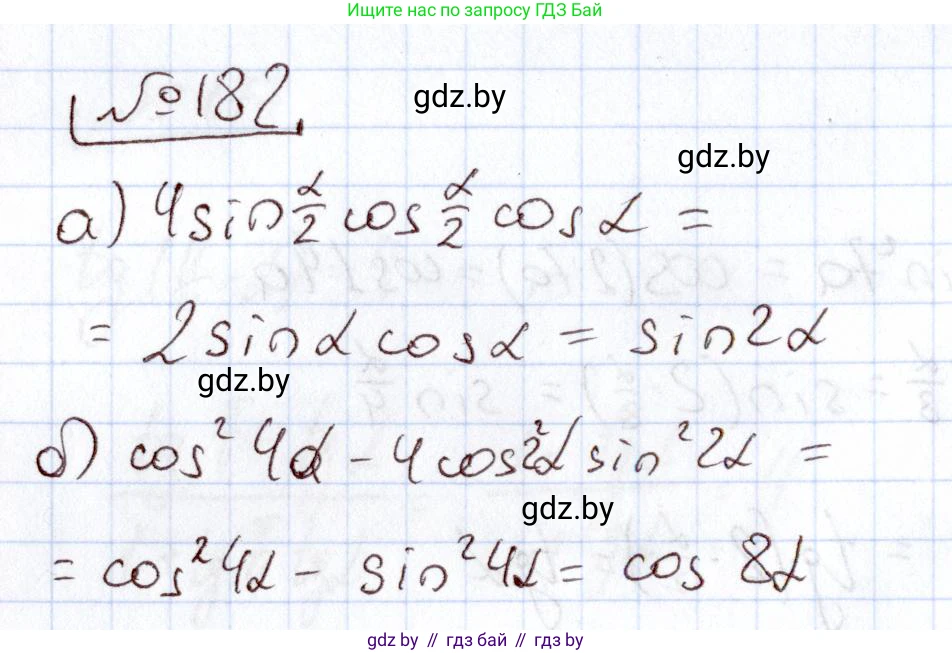 Ищите нас по запросу ГДЗ Бай
№182
gdz.by
gdz.by
а) 4 sin α/2 cos α/2 cos α =
= 2 sin α cos α = sin 2α
gdz.by
б) cos² 4α - 4 cos² 2α sin² 2α =
gdz.by
= cos² 4α - sin² 4α = cos 8α
gdz.by // гдз бай // гдз by